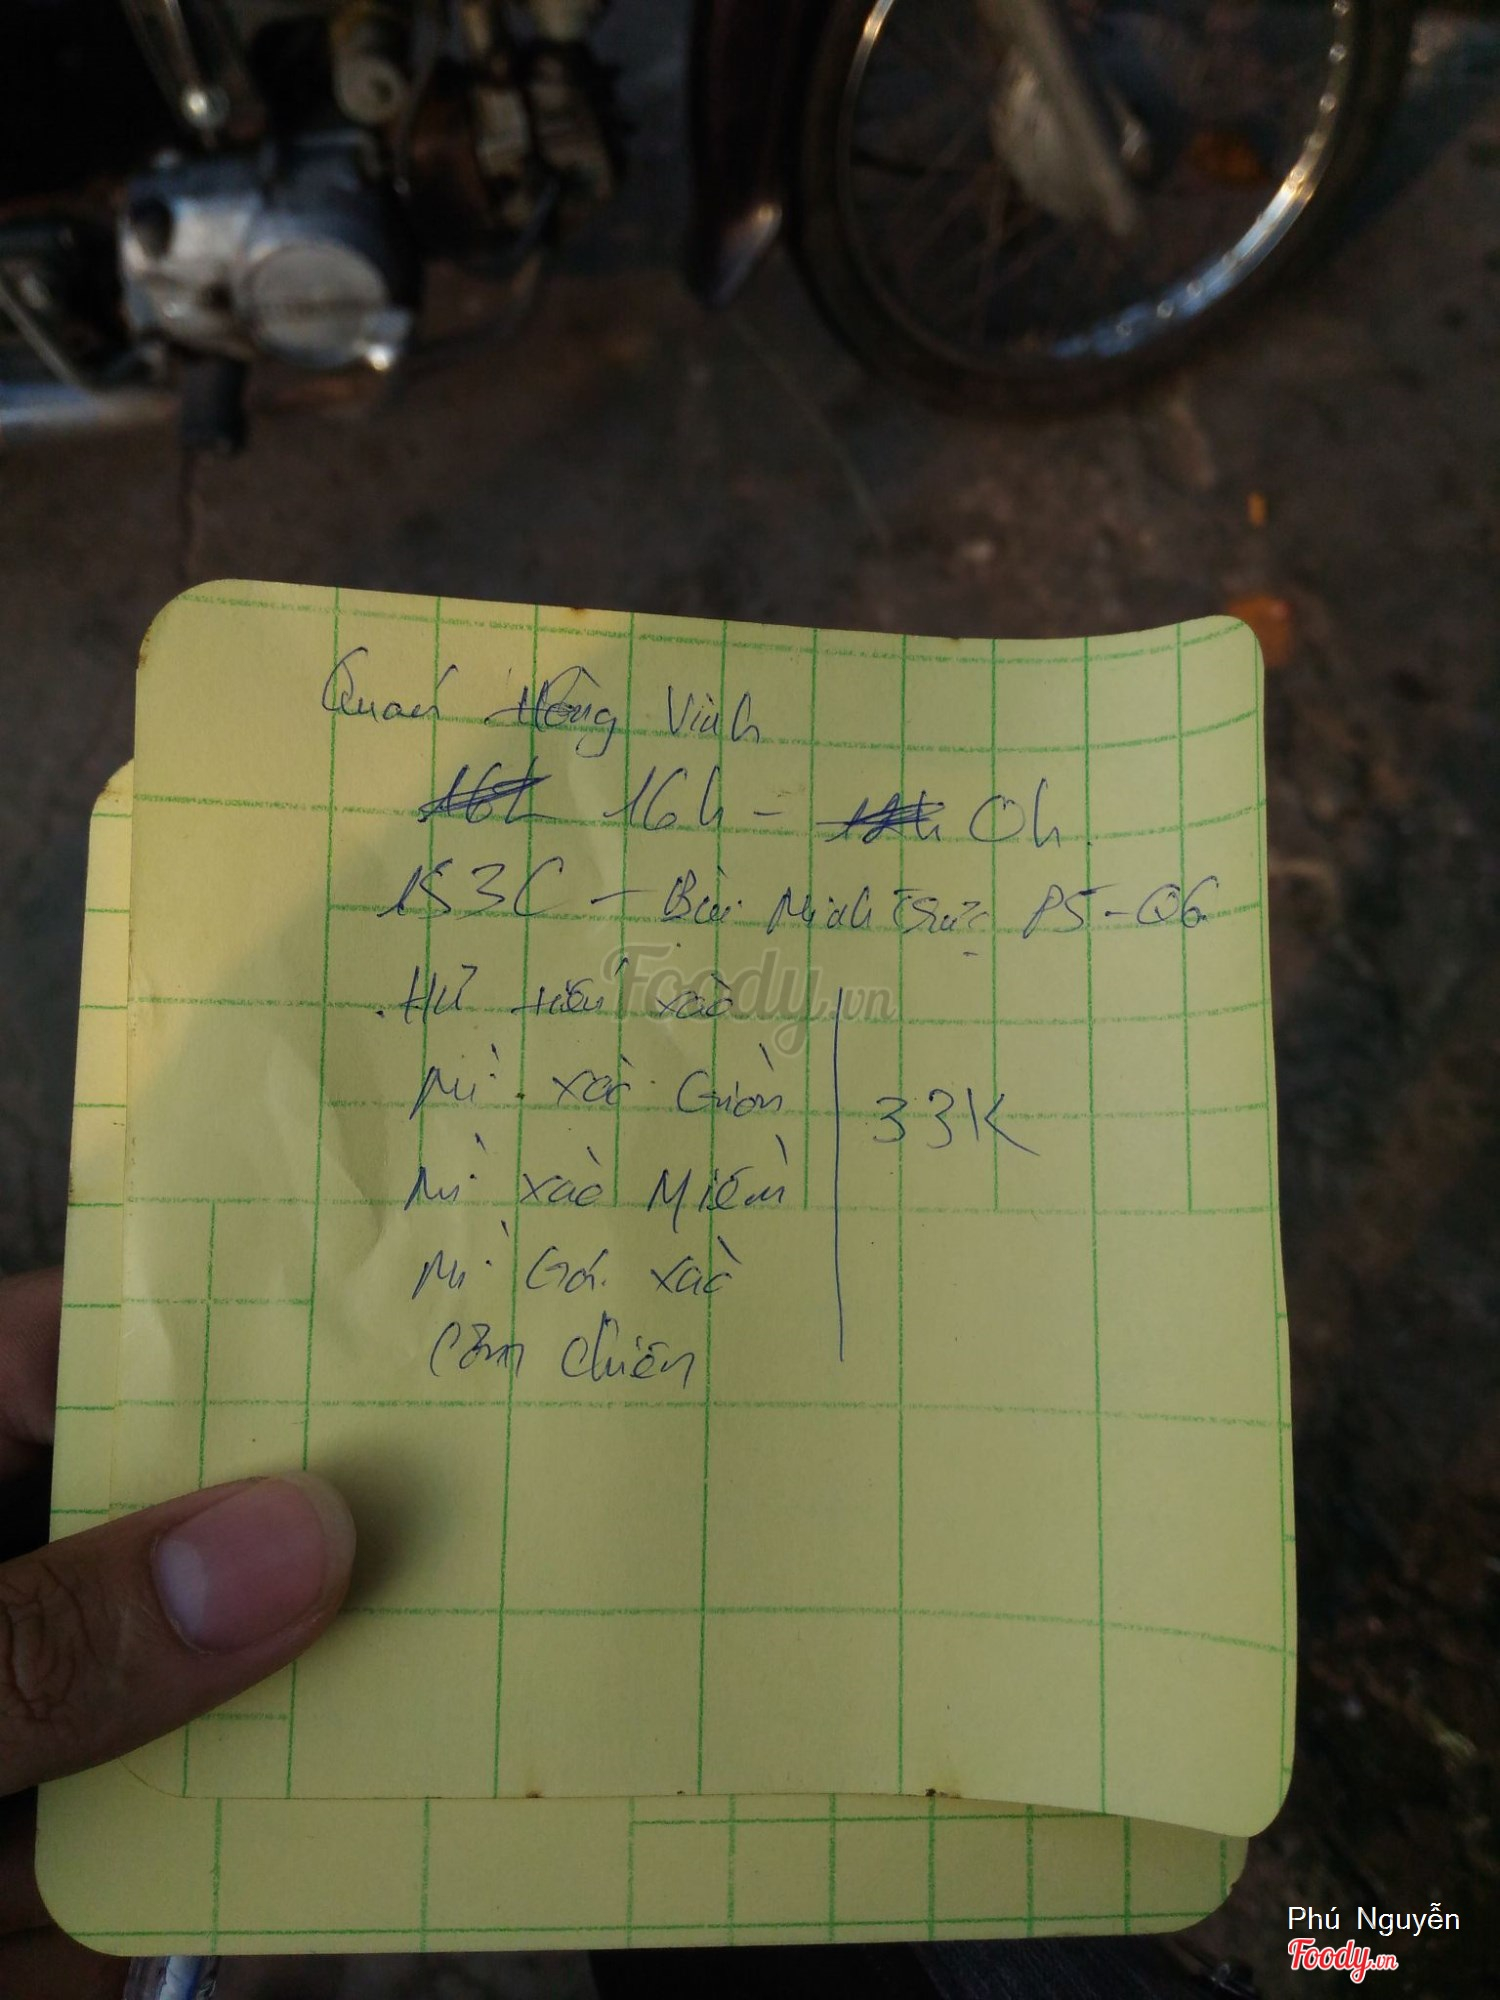 Quán Hồng Vinh
16h 16h - 12h 0h
153C - Bùi Minh Trực P5-Q6
. Hủ tiếu xào
Mì xào Giòn
33K
Mì xào Miềm
Mì Gói xào
Cơm chiên
Foody.vn
Phú Nguyễn
Foody.vn